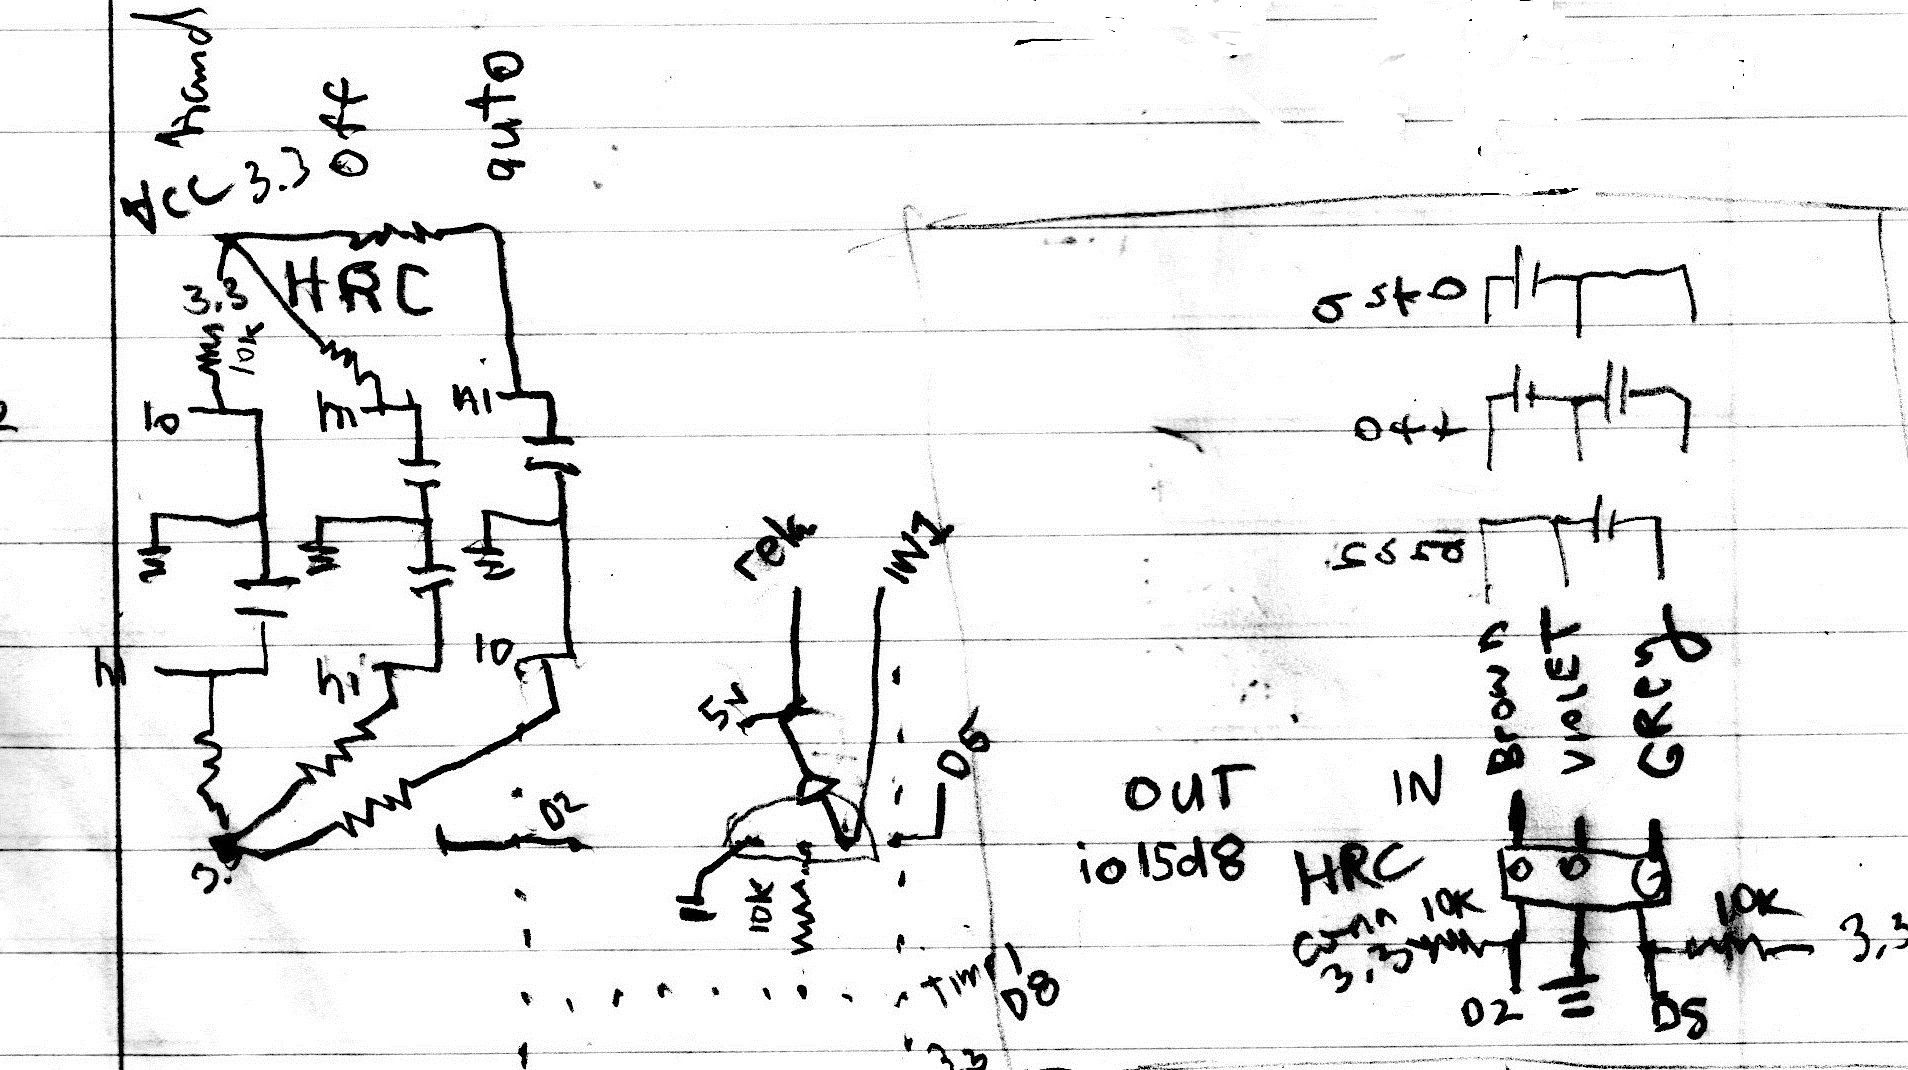 hand
off
auto
VCC 3.3
HRC
3.3
10K
lo
hi
hi
hi
lo
D2
relay
IN1
5V
D6
10K
OUT
IN
io15d8
HRC
conn
10K
3.3
D2
Brown
VIOLET
GRey
10K
3.3
D8
off
Timer
D8
3.3